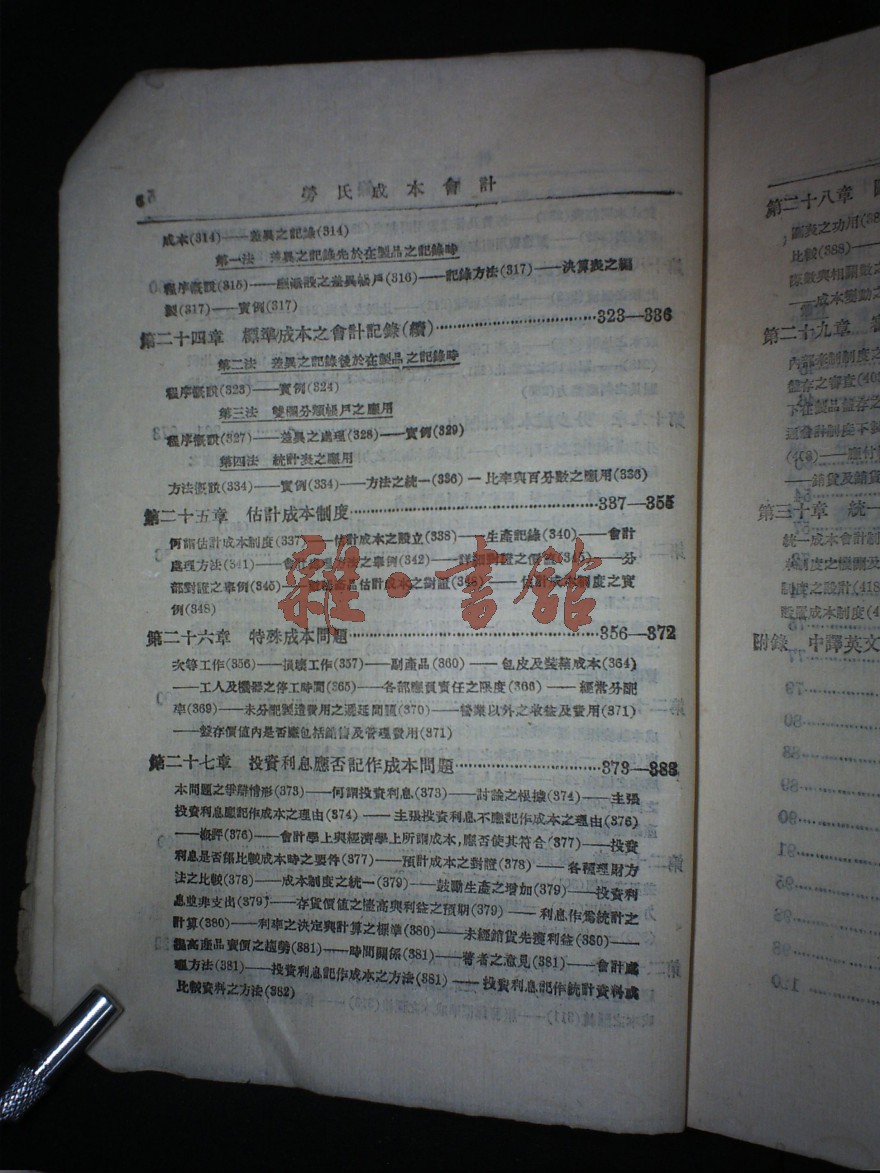 勞氏成本會計
成本(314)——差異之記錄(314)
第一法 差異之記錄先於在製品之記錄時
程序概說(315)——應添設之差異帳戶(316)——記錄方法(317)——決算表之編
製(317)——實例(317)
第二十四章 標準成本之會計記錄(續)……323—336
第二法 差異之記錄後於在製品之記錄時
程序概說(323)——實例(324)
第三法 雙欄分類帳戶之應用
程序概說(327)——差異之處理(328)——實例(329)
第四法 統計表之應用
方法概說(334)——實例(334)——方法之統一(336)—比率與百分數之應用(336)
第二十五章 估計成本制度……337—355
何謂估計成本制度(337)——估計成本之設立(338)——生產記錄(340)——會計
處理方法(341)——會計處理方法之舉例(342)——詳細對證之價值(345)——分
部對證之舉例(345)——估計成本之對證(348)——估計成本制度之實
例(348)
雜·書館
第二十六章 特殊成本問題……356—372
次等工作(356)——損壞工作(357)——副產品(360)——包皮及裝箱成本(364)
——工人及機器之停工時間(365)——各部應負責任之限度(366)——經常分配
率(369)——未分配製造費用之遞延問題(370)——營業以外之收益及費用(371)
——盤存價值內是否應包括銷售及管理費用(371)
第二十七章 投資利息應否記作成本問題……373—383
本問題之爭辯情形(373)——何謂投資利息(373)——討論之根據(374)——主張
投資利息應記作成本之理由(374)——主張投資利息不應記作成本之理由(376)
——概評(376)——會計學上與經濟學上所謂成本,應否使其符合(377)——投資
利息是否係比較成本時之要件(377)——預計成本之對證(378)——各種理財方
法之比較(378)——成本制度之統一(379)——鼓勵生產之增加(379)——投資利
息並非支出(379)——存貨價值之陞高與利益之預期(379)——利息作爲統計之
計算(380)——利率之決定與計算之標準(380)——未經銷貨先獲利益(380)——
提高產品賣價之趨勢(381)——時間關係(381)——著者之意見(381)——會計處
理方法(381)——投資利息記作成本之方法(381)——投資利息記作統計資料或
比較資料之方法(382)
第二十八章
圖表之功用(38
比較(388)——
係數與相關數之
——成本變動之
第二十九章
內部牽制制度之
盤存之審查(40
第三十章 統一
統一成本會計制
本制度之機關及
制度之設計(418
設置成本制度(4
附錄 中譯英文